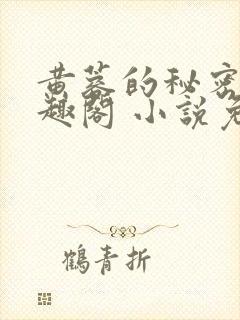 黄蓉的秘密
趣閣 小說免
鶴青折